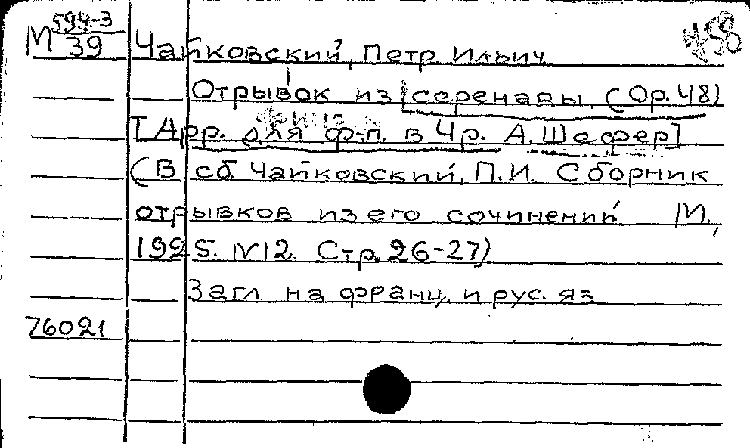 М 594-3/39
Чайковский, Петр Ильич
Отрывок из серенады (Op. 48)
[Арр. для ф-п. в 4 р. А. Шефер]
(В сб Чайковский, П.И. Сборник
отрывков из его сочинений М.,
1925. №12. Стр. 26-27)
Загл на франц. и рус. яз
76021